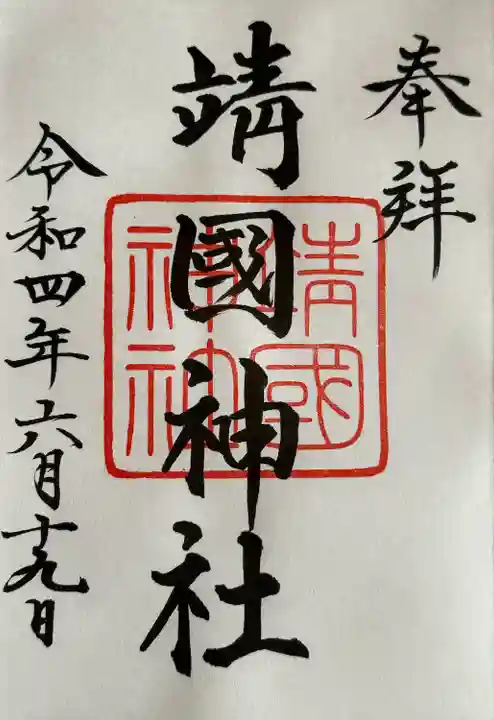 奉拜
靖國神社
靖國
神社
令和四年六月十九日